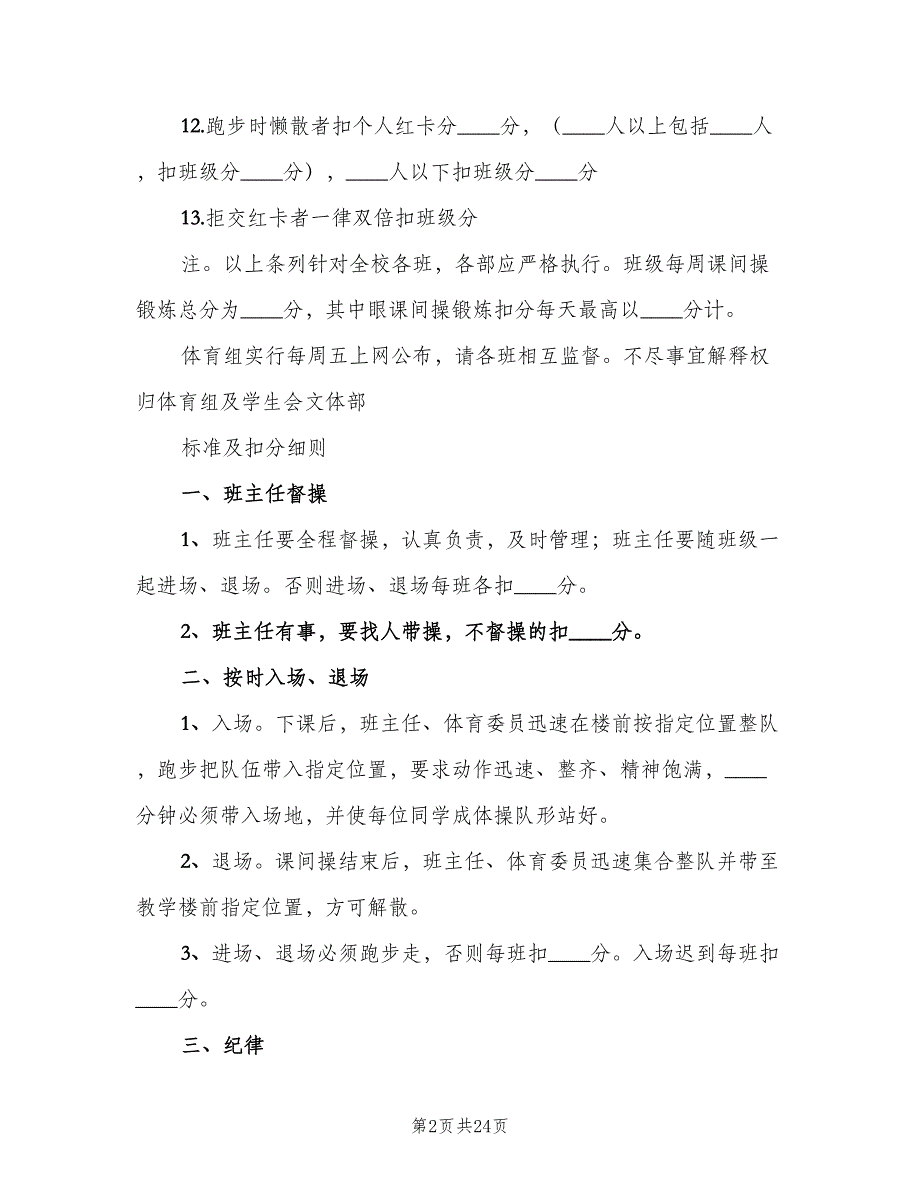 12.跑步时懒散者扣个人红卡分____分，（____人以上包括____人
，扣班级分____分），____人以下扣班级分____分
13.拒交红卡者一律双倍扣班级分
注。以上条列针对全校各班，各部应严格执行。班级每周课间操
锻炼总分为____分，其中眼课间操锻炼扣分每天最高以____分计。
体育组实行每周五上网公布，请各班相互监督。不尽事宜解释权
归体育组及学生会文体部
标准及扣分细则
一、班主任督操
1、班主任要全程督操，认真负责，及时管理；班主任要随班级一
起进场、退场。否则进场、退场每班各扣____分。
2、班主任有事，要找人带操，不督操的扣____分。
二、按时入场、退场
1、入场。下课后，班主任、体育委员迅速在楼前按指定位置整队
，跑步把队伍带入指定位置，要求动作迅速、整齐、精神饱满，____
分钟必须带入场地，并使每位同学成体操队形站好。
2、退场。课间操结束后，班主任、体育委员迅速集合整队并带至
教学楼前指定位置，方可解散。
3、进场、退场必须跑步走，否则每班扣____分。入场迟到每班扣
____分。
三、纪律
第2页共24页